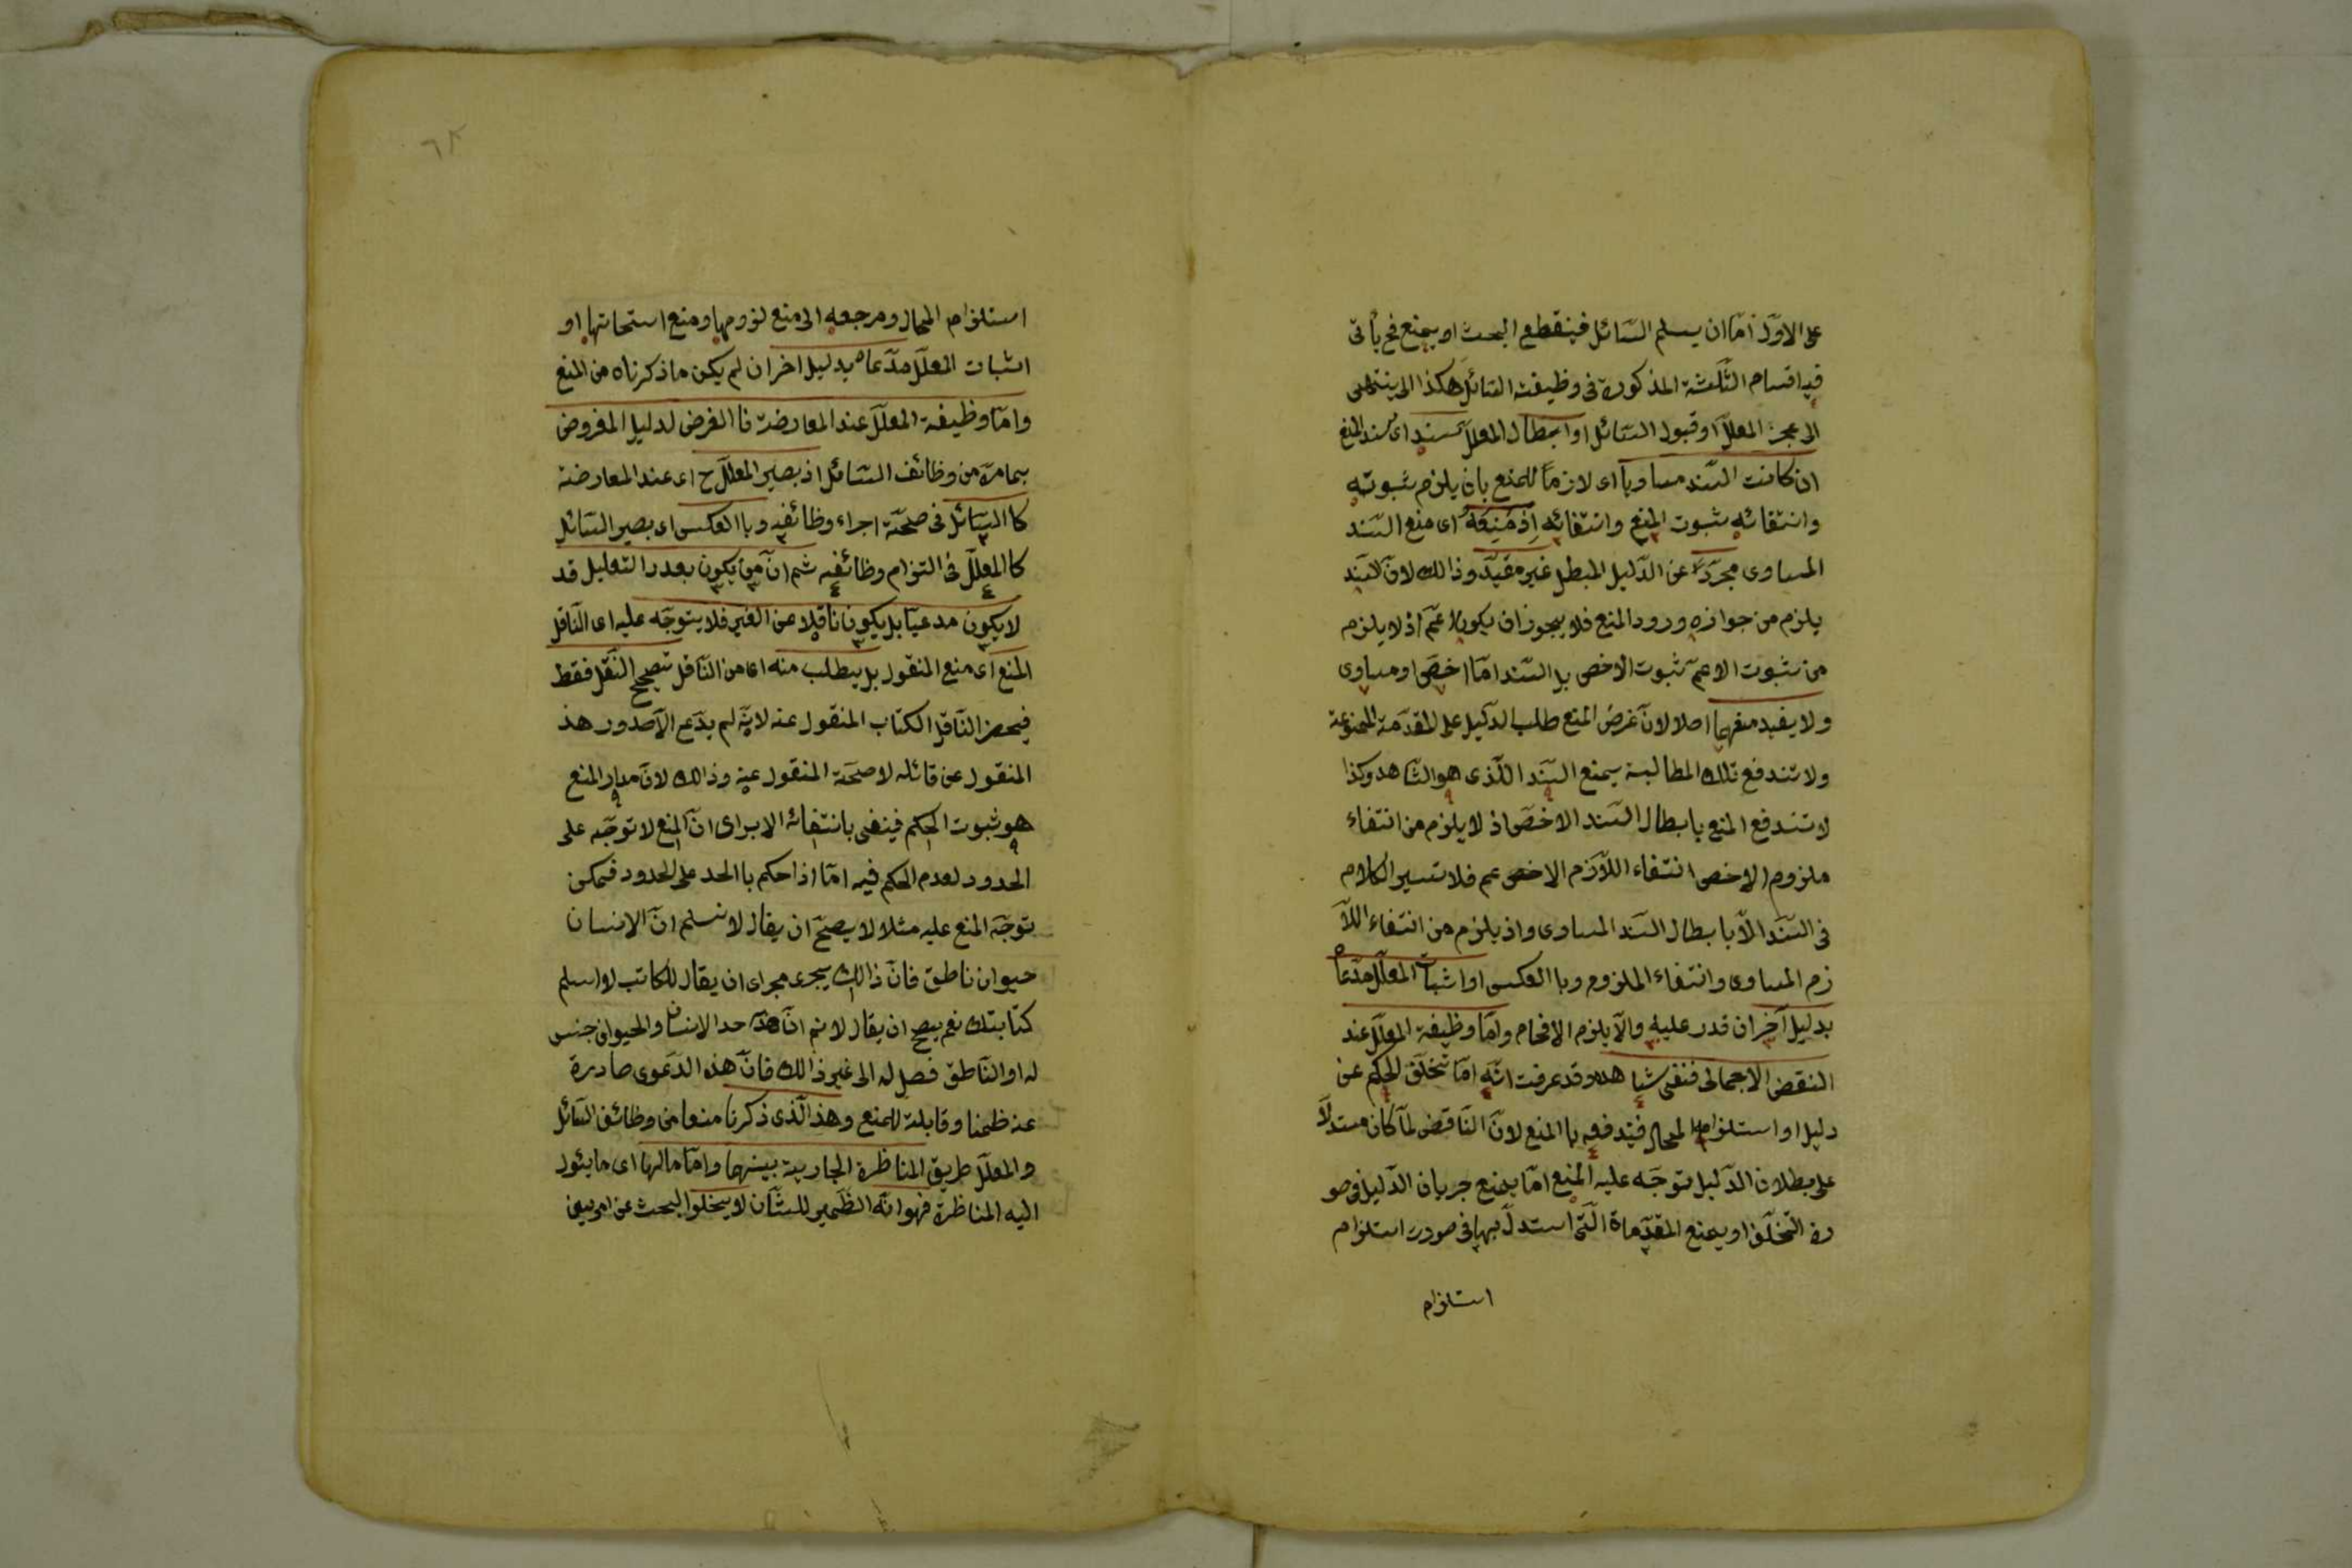 على الاوّل امّا ان يسلم السّائل فينقطع البحث او يمنع فح يأتى
فيه اقسام الثّلثة المذكورة فى وظيفة السّائل هكذا الى ينتهى
الى عجز المعلّل او قبول السّائل او ابطال المعلّل سنده اى سند المنع
ان كانت السّند مساوياً اى لازماً للمنع بان يلزم ثبوته
وانتفائه ثبوت المنع وانتفائه اذ منعه اى منع السّند
المساوى مجرّداً عن الدّليل المبطل غير مقيّد وذالك لانّ السّند
يلزم من جوازه ورود المنع فلا يجوز ان يكون اعمّ اذ لا يلزم
من ثبوت الاعمّ ثبوت الاخص بل السّند امّا اخصّ او مساوى
ولا يفيد منعهما اصلا لانّ غرض المنع طلب الدّليل على المقدّمة الممنوعة
ولا تندفع تلك المطالبة بمنع السّند اللّذى هو الشّاهد وكذا
لا تندفع المنع بابطال السّند الاخصّ اذ لا يلزم من انتفاء
ملزوم الاخص انتفاء اللّازم الاخص عم فلا تسير الكلام
فى السّند الاّ بابطال السّند المساوى واذ يلزم من انتفاء اللاّ
زم المساوى وانتفاء الملزوم وبا العكس او اثبات المعلّل مدّعاه
بدليل آخر ان قدر عليه والّا يلزم الافحام وامّا وظيفة المعلّل عند
النقض الاجمالى فنفى شاهده وقد عرفت انّه امّا تخلّف الحكم عن
دليل او استلزامه المحال فيدفعه با المنع لانّ النّاقض لمّا كان مستدلاّ
على بطلان الدّليل توجّه عليه المنع امّا بمنع جريان الدّليل فى صو
رة التّخلّف او بمنع المقدّماة الّتى استدلّ بها فى صورة استلزام
استلزام
استلزام المحال ومرجعه الى منع لزومها ومنع استحالتها او
اثبات المعلّل مدّعاه بدليل اخر ان لم يكن ما ذكرناه من المنع
وامّا وظيفة المعلّل عند المعارضة فا الغرض لدليل المفروض
بمامرّة من وظائف السّائل اذ يصير المعلّل ح اى عند المعارضة
كا السّائل فى صحّة اجراء وظائفه وبا العكس اى يصير السّائل
كا المعلّل فى التزام وظائفه ثم انّ من يكون بصدد التعليل قد
لا يكون مدعيّا بل يكون ناقلا عن الغير فلا يتوجّه عليه اى النّاقل
المنع اى منع المنقول بل يطلب منه اى من النّاقل تصحيح النّقل فقط
فيحضر النّاقل الكتاب المنقول عنه لانّه لم يدّع الّا صدور هذ
المنقول عن قائله لا صحّة المنقول عنه وذالك لانّ مدار المنع
هو ثبوت الحكم فينفى بانتفائه الا يرى انّ المنع لا توجّه على
الحدود لعدم الحكم فيه امّا اذا حكم با الحد على المحدود فيمكن
توجّه المنع عليه مثلا لا يصحّ ان يقال لا نسلم انّ الانسان
حيوان ناطق فانّ ذالك يجرى مجراى ان يقال للكاتب لا اسلم
كتابتك نعم يصح ان يقال لا نم انّ هذا حد الانسان والحيوان جنس
له او النّاطق فصل له الى غير ذالك فانّ هذه الدّعوى صادرة
عنه ضمنا وقابلة للمنع وهذ الّذى ذكرنا منعا من وظائف السّائل
والمعلّل طريق المناظرة الجارية بينهما وامّا مالها اى ما يئول
اليه المناظرة فهو انّه الضّمير للشّان لا يخلوا البحث عن امريين